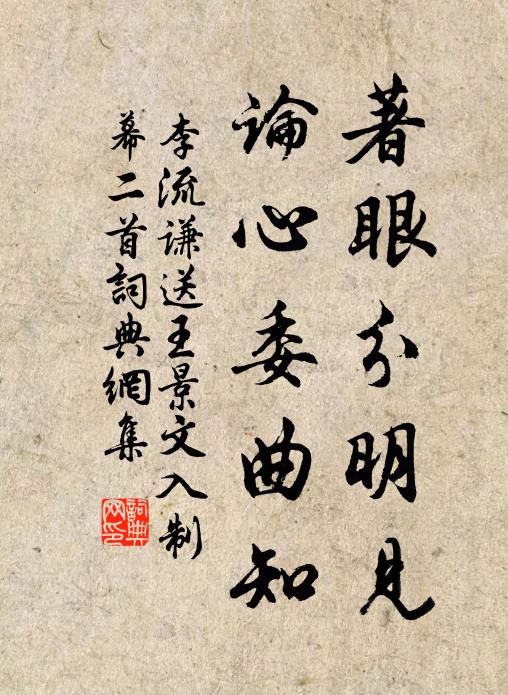 著眼分明見
論心委曲知
李流謙送王景文入制
幕二首詞典網集
詞典
网印